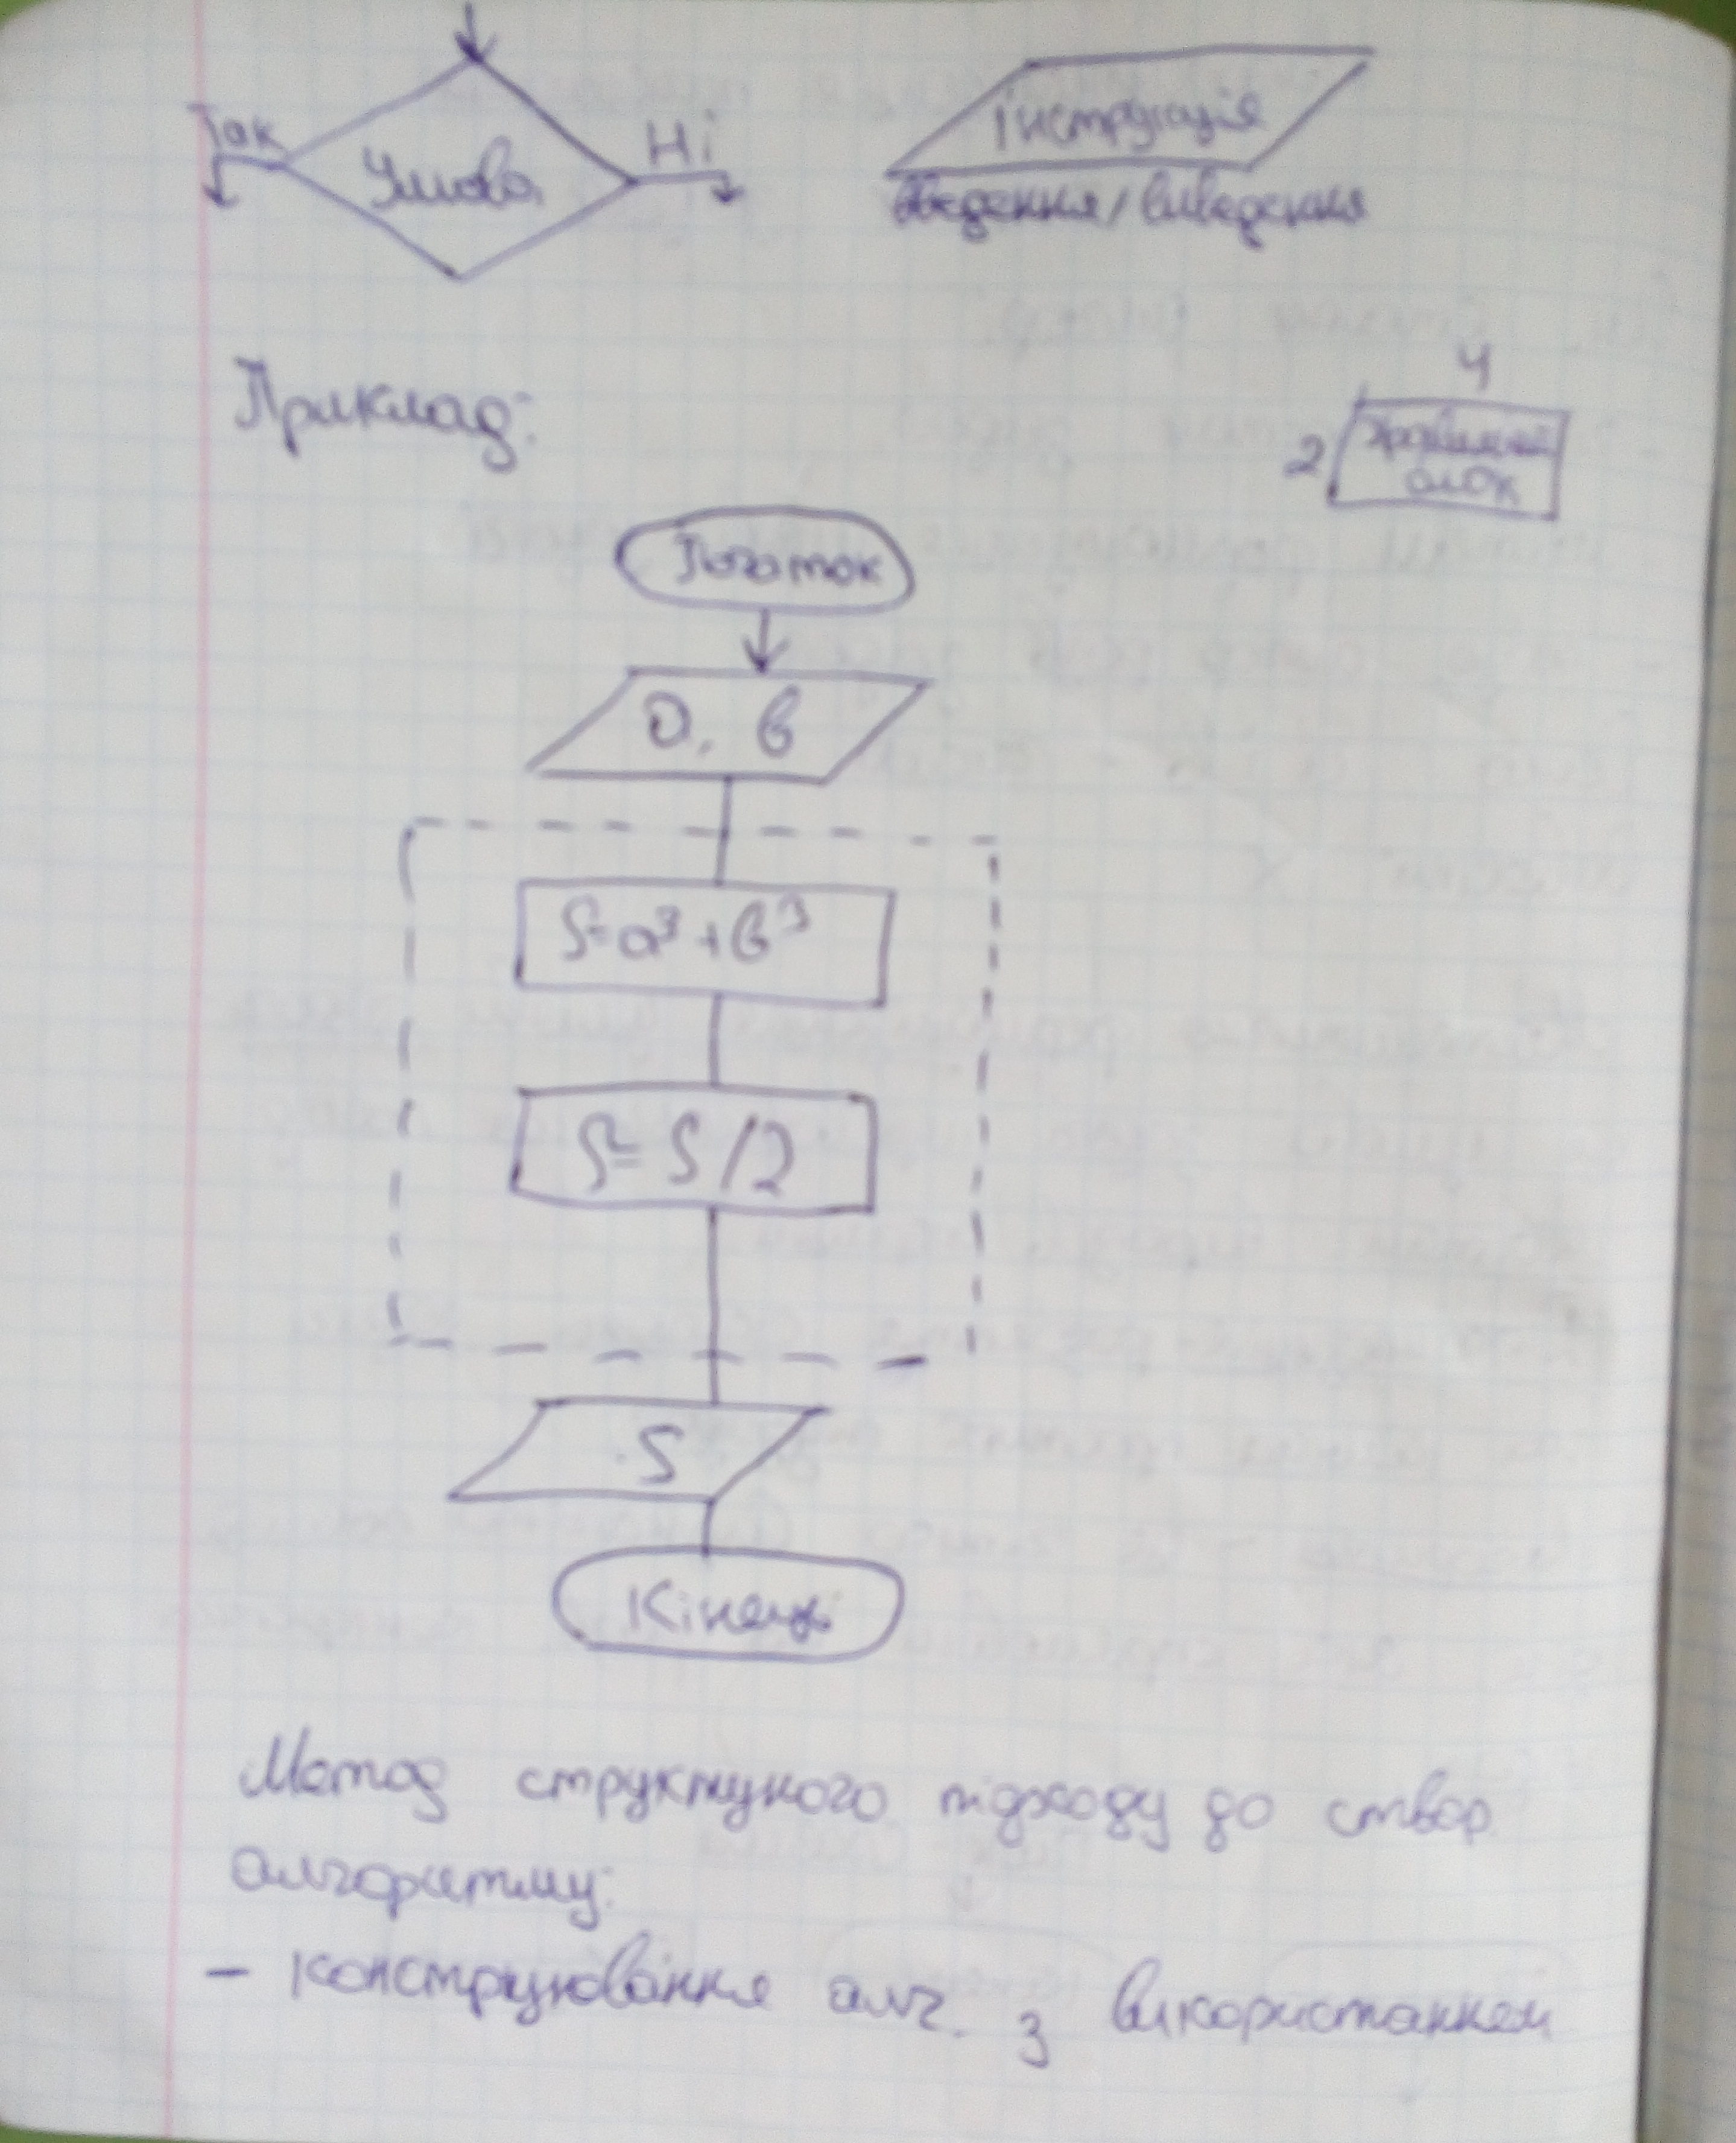 Так
Умова
Ні
Інструкція
Введення/виведення
Приклад:
4
2
блок
Початок
а, в
S=a³+в³
S=S/2
S
Кінець
Метод структуного підходу до створ
алгоритму:
- конструювання алг. з використанням